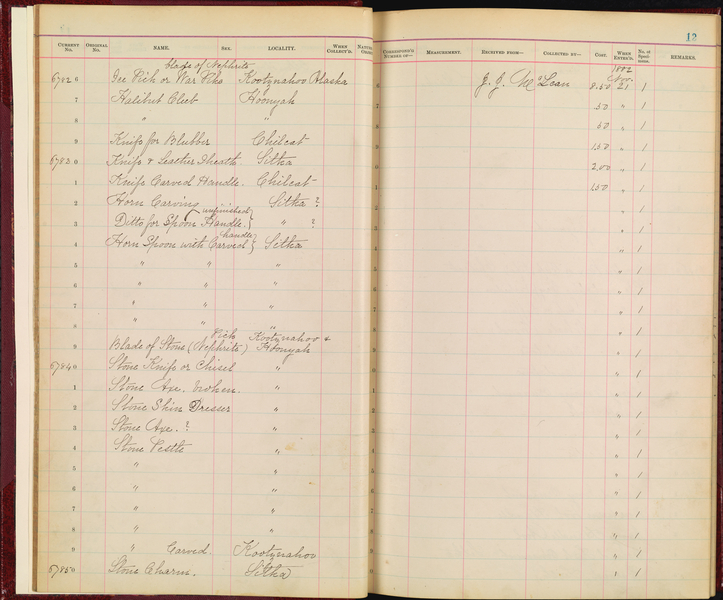 12
CURRENT No. ORIGINAL No. NAME. SEX. LOCALITY. WHEN COLLECT'D. CORRESPOND'G NUMBER OF— MEASUREMENT. RECEIVED FROM— COLLECTED BY— COST. WHEN ENTER'D. No. of Specimens. REMARKS.
Blade of Nephrite 1882
67826 Ice Pick or War Pike Kootznahoo Alaska J. J. McLean 8.50 Nov. 21 1
7 Halibut Club Hoonyah .50 " 1
8 " " .50 " 1
9 Knife for Blubber Chilcat 1.50 " 1
67830 Knife & Leather Sheath Sitka 2.00 " 1
1 Knife Carved Handle. Chilcat 1.50 " 1
2 Horn Carving Sitka ? " 1
unfinished
3 Ditto for Spoon Handle. " ? " 1
handle
4 Horn Spoon with Carved Sitka " 1
5 " " " " 1
6 " " " " 1
7 " " " " 1
8 " " " " 1
Pick Kootznahoo &
9 Blade of Stone (Nephrite) Hoonyah " 1
67840 Stone Knife or Chisel " " 1
1 Stone Axe. broken. " " 1
2 Stone Skin Dresser " " 1
3 Stone Axe. ? " " 1
4 Stone Pestle " " 1
5 " " " 1
6 " " " 1
7 " " " 1
8 " " " 1
9 " Carved. Kootznahoo " 1
67850 Stone Charm. Sitka " 1